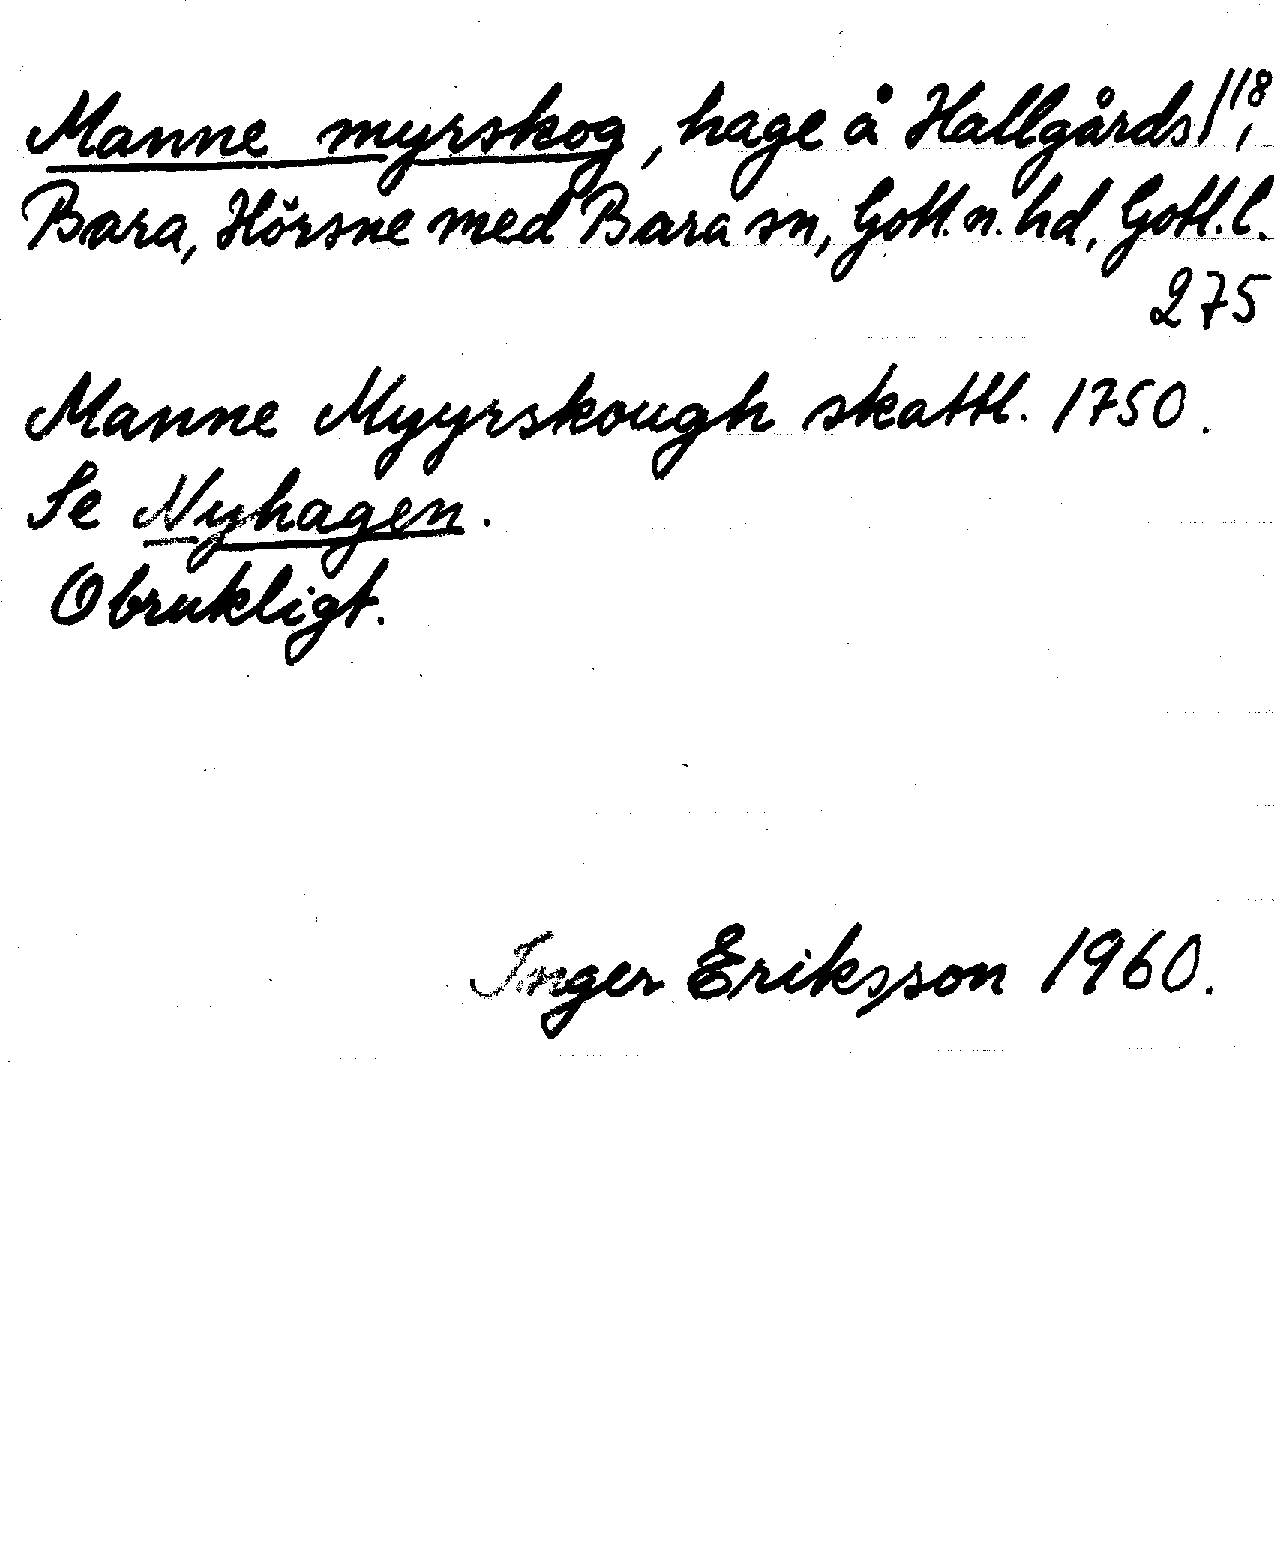 Manne myrskog, hage å Hallgårds 1/18,
Bara, Hörsne med Bara sn, Gotl. n. hd, Gotl. l.
275
Manne Myyrskough skattl. 1750.
Se Nyhagen.
Obrukligt.
Inger Eriksson 1960.